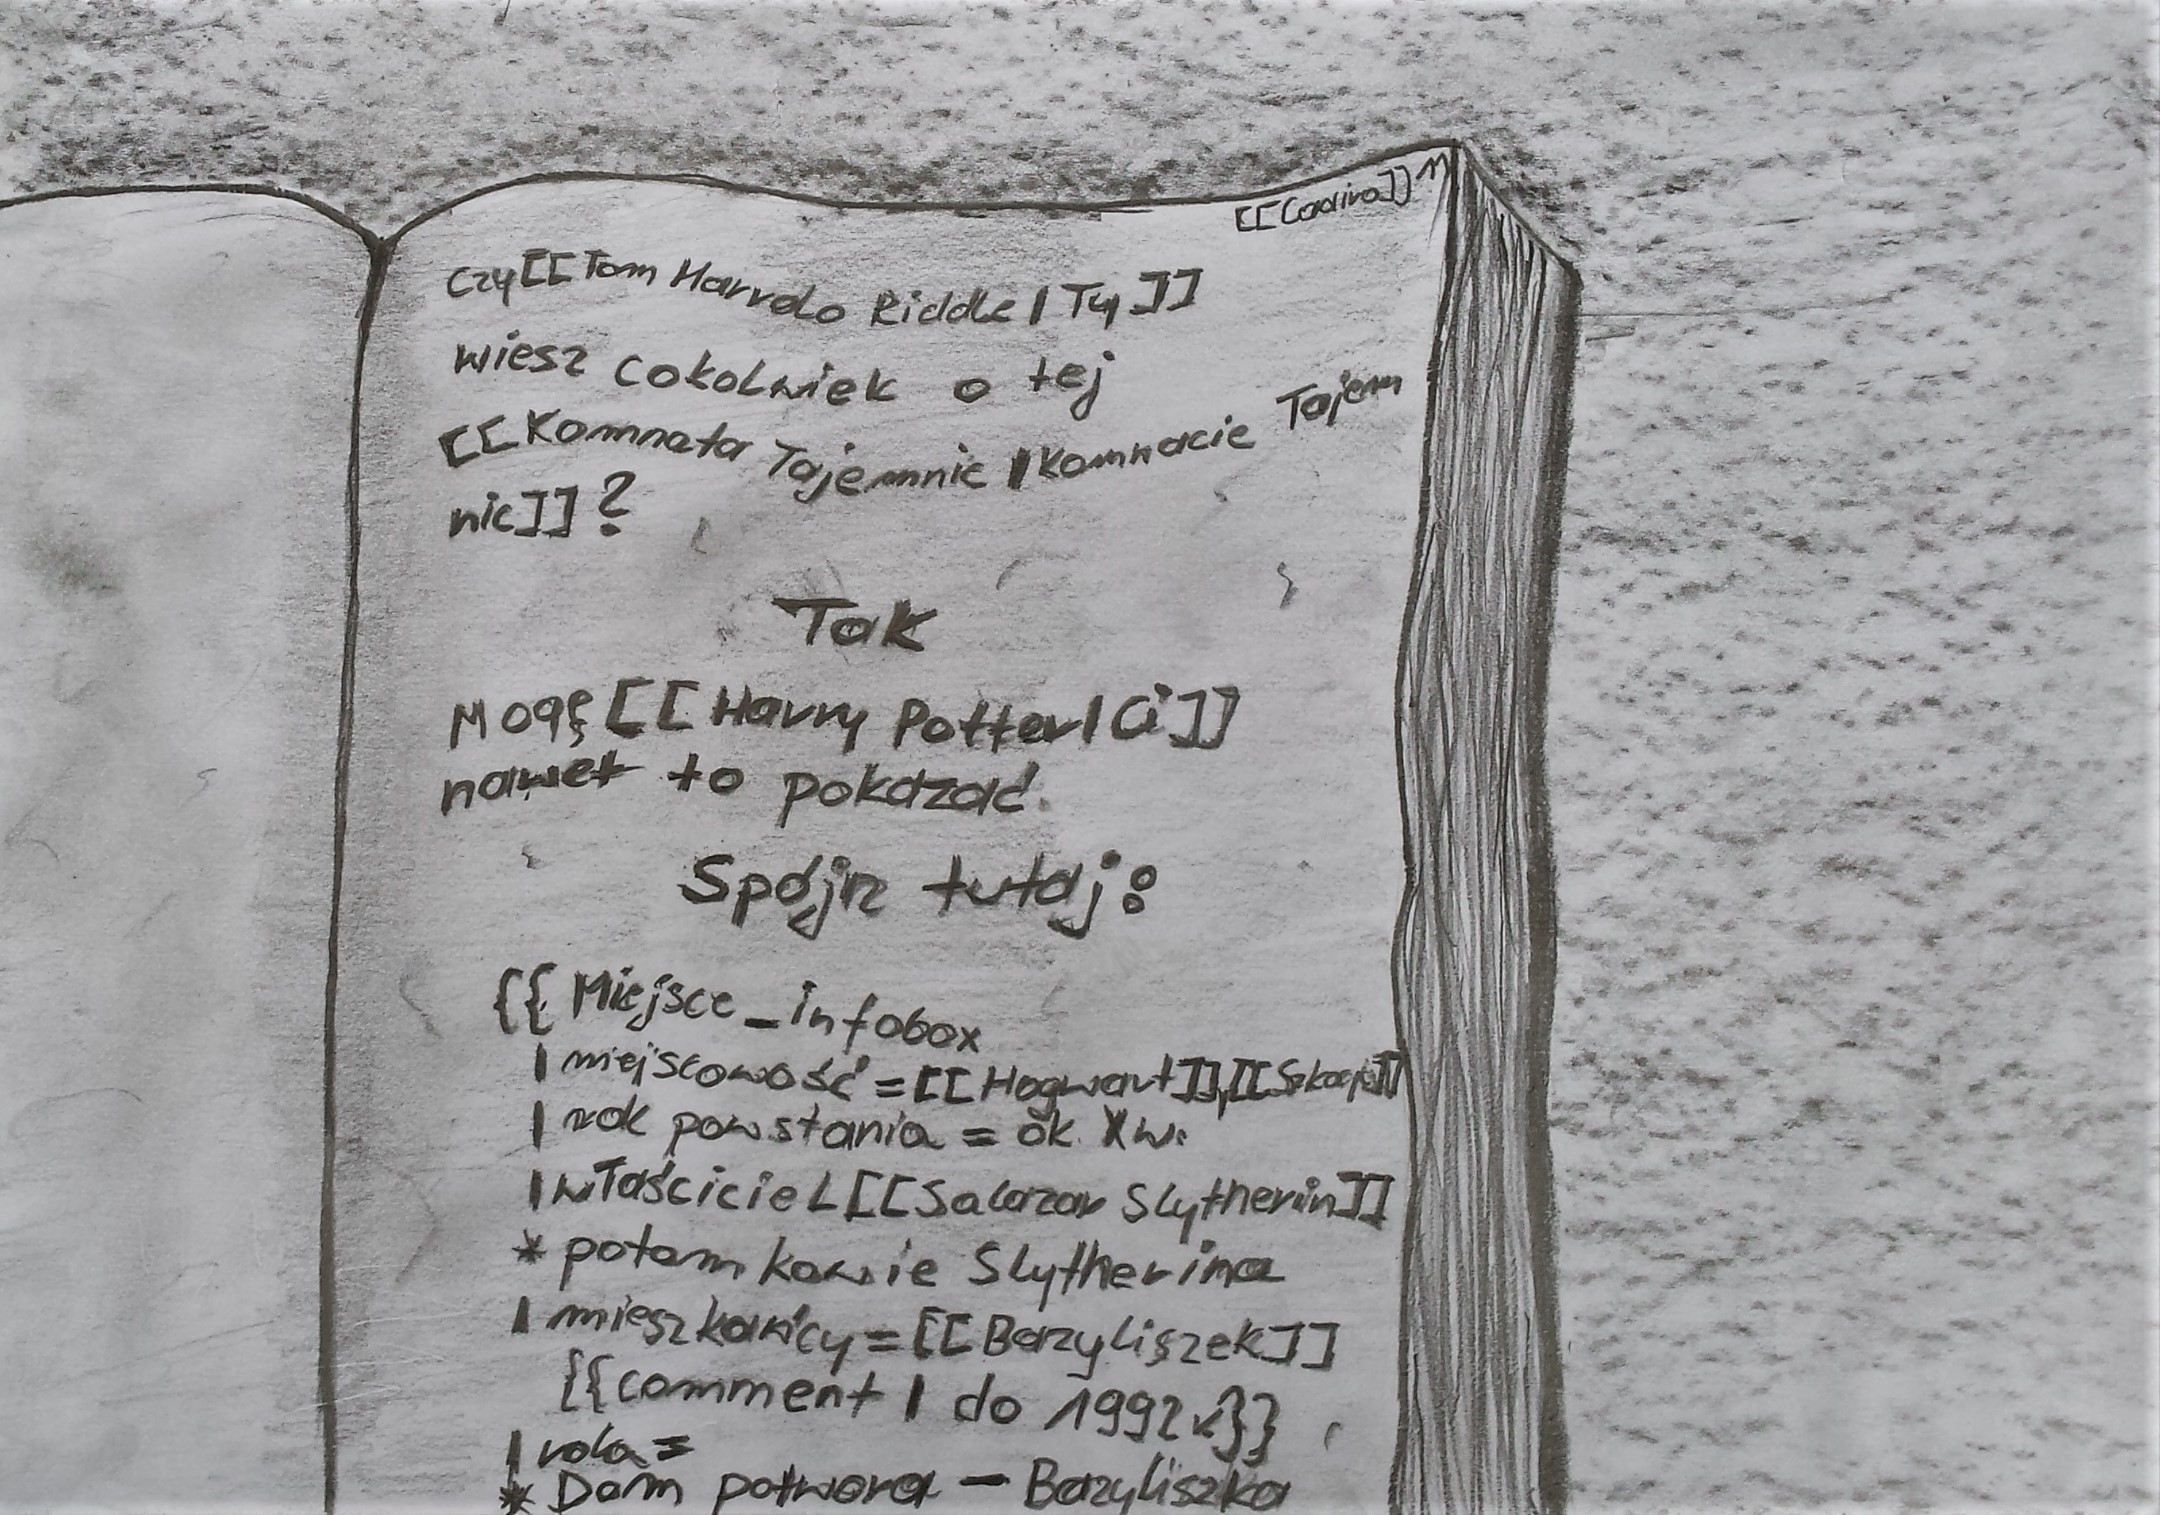 Czy [[Tom Marvolo Riddle|Ty]]
wiesz cokolwiek o tej
[[Komnata Tajemnic|Komnacie Tajem
nic]]?
Tak
Mogę [[Harry Potter|Ci]]
nawet to pokazać.
Spójrz tutaj:
{{Miejsce_infobox
| miejscowość = [[Hogwart]], [[Szkocja]]
| rok powstania = ok. X w.
| właściciel [[Salazar Slytherin]]
* potomkowie Slytherina
| mieszkańcy = [[Bazyliszek]]
{{comment | do 1992 r}}
| rola =
* Dom potwora - Bazyliszka